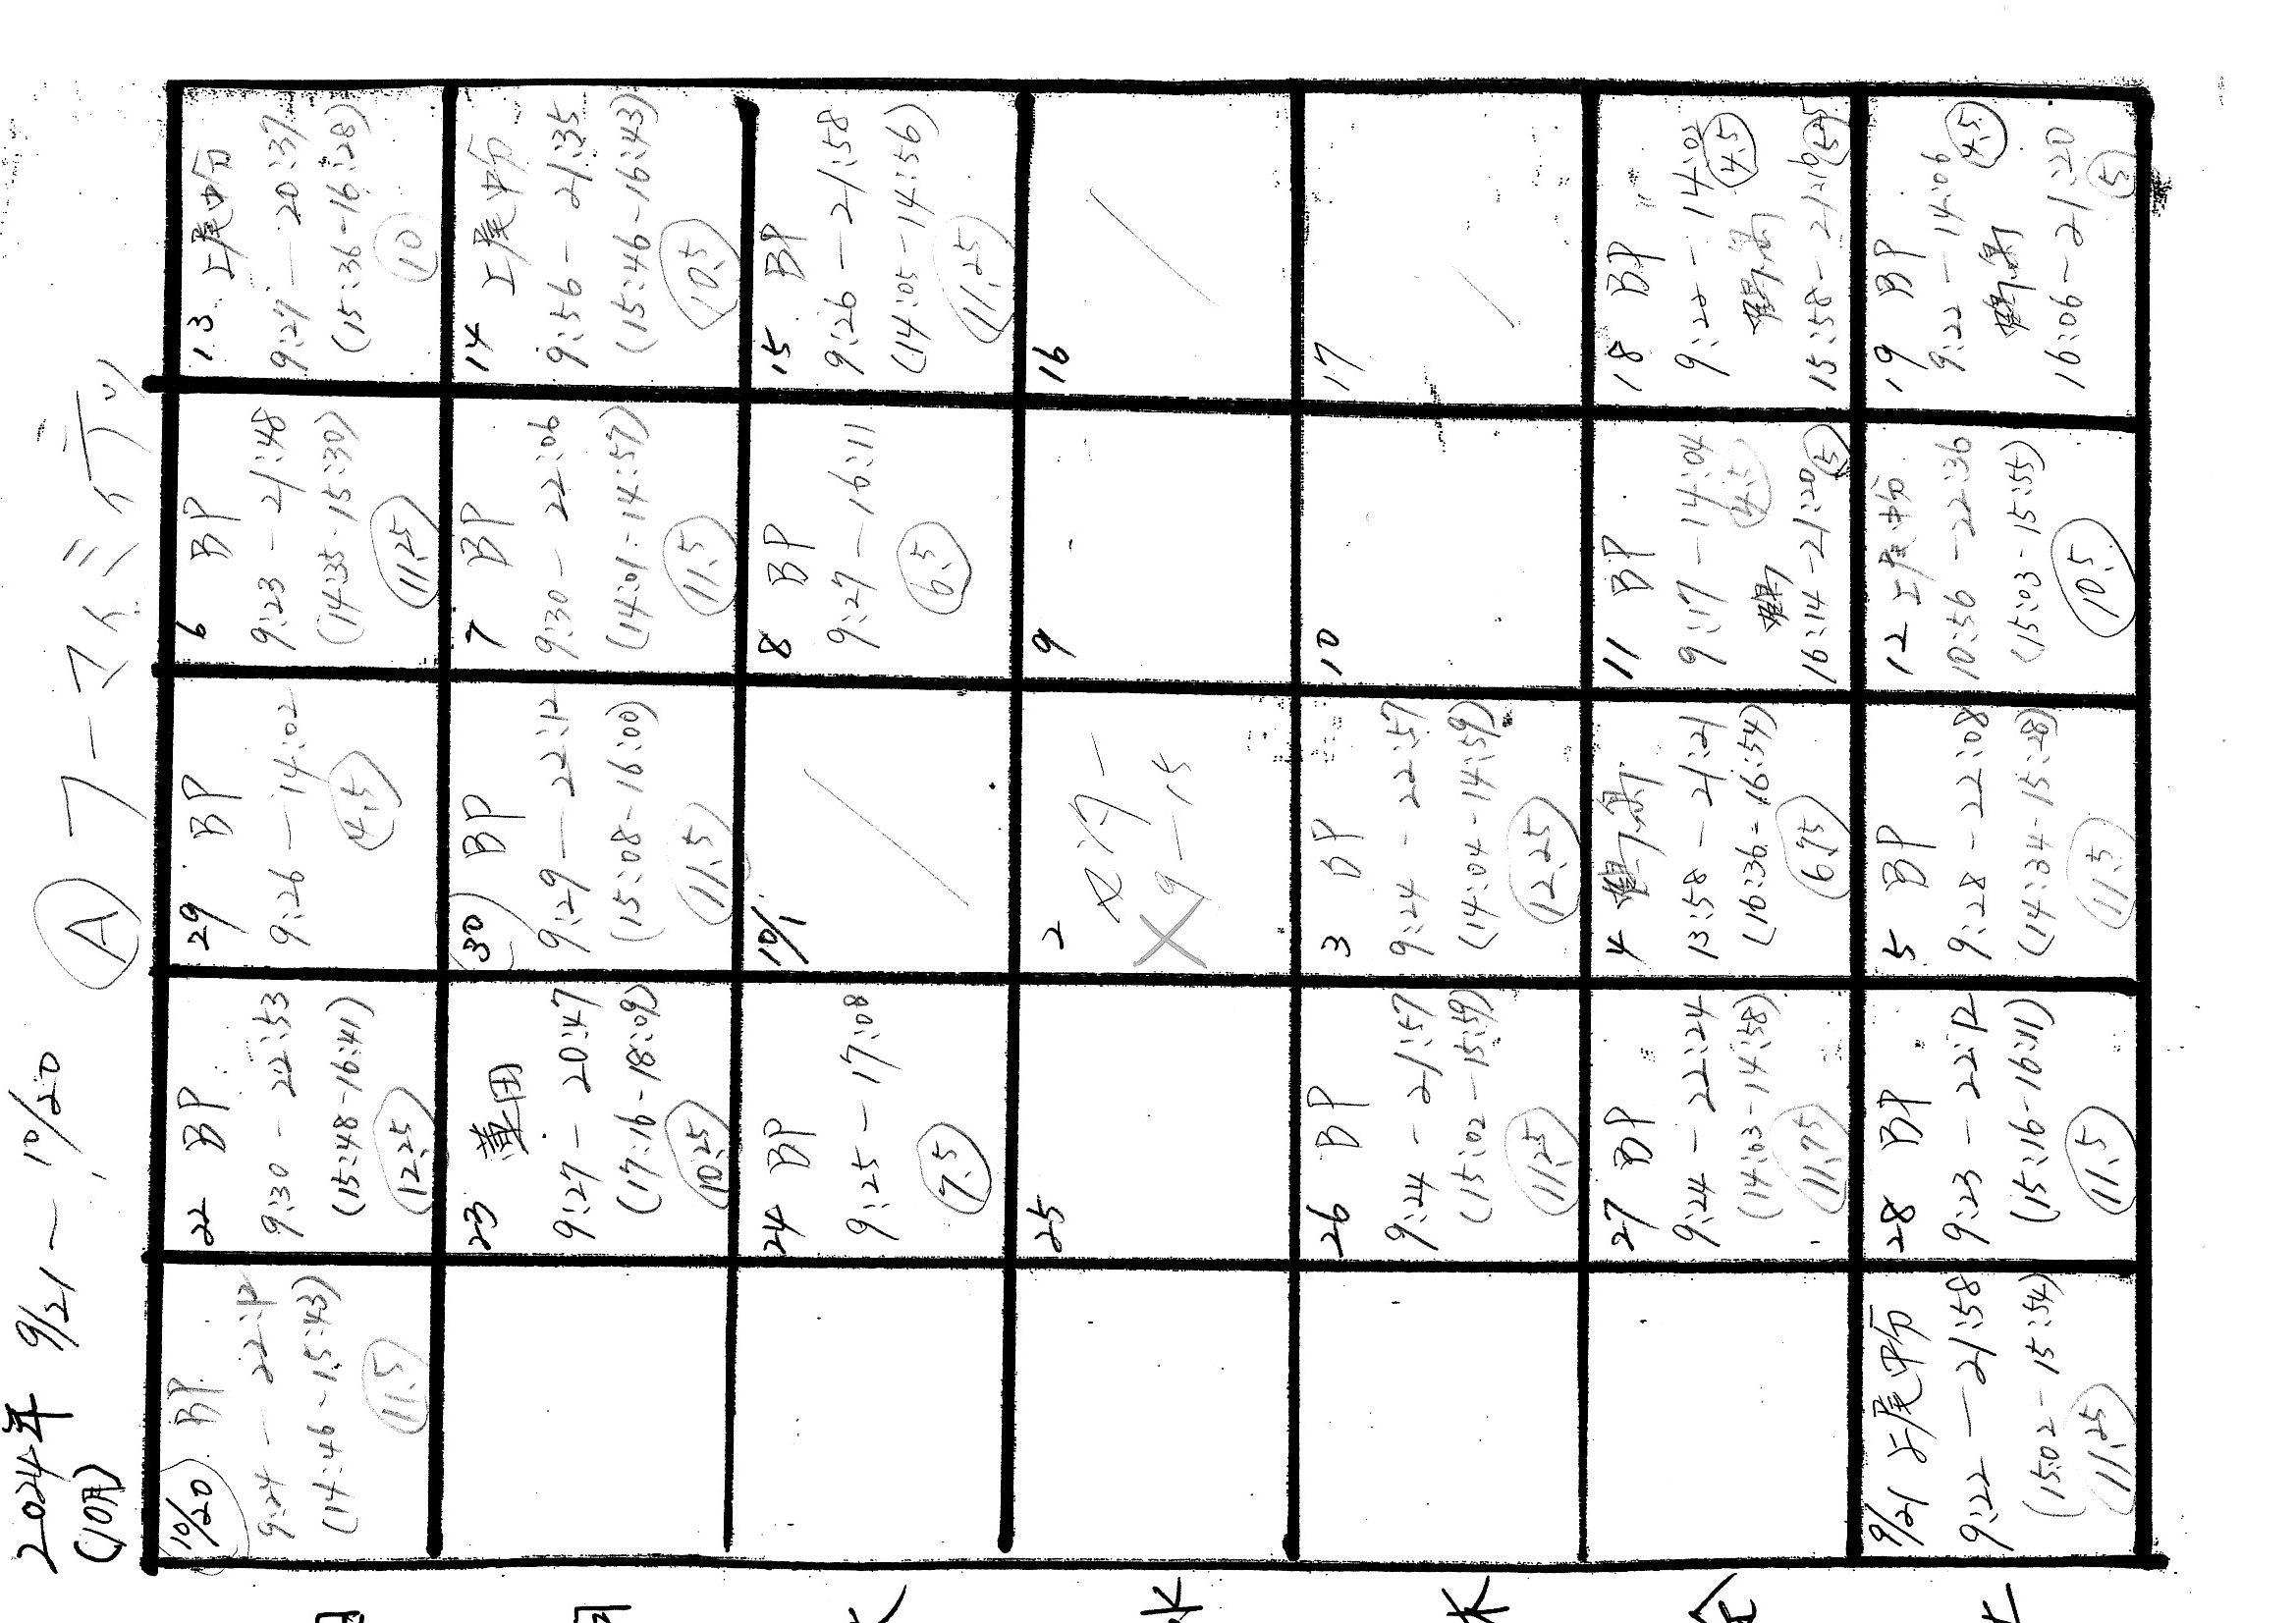 2024年 9/21 ～ 10/20
(10月)
Ⓐ フーマイミ
日 月 火 水 木 金 土
9/21 上尾中分
9:22 — 21:58
(15:02 - 15:54)
11.25
10/20 BP
9:24 — 22:12
(14:46 ~ 15:43)
11.5
22 BP
9:30 - 22:53
(15:48-16:41)
12.25
23
9:27 - 20:47
(17:16 - 18:09)
10.25
24 BP
9:25 - 17:08
7.5
25
26 BP
9:24 - 21:57
(15:02 - 15:59)
11.25
27 BP
9:24 - 22:24
(14:03-14:58)
11.75
28 BP
9:23 - 22:12
(15:16-16:11)
11.5
29 BP
9:26 — 14:02
4.5
30 BP
9:29 — 22:12
(15:08 - 16:00)
11.5
10/1
2
× 9-15
3 BP
9:24 - 22:57
(14:04 - 14:59)
12.25
4
13:58 - 21:21
(16:36 - 16:54)
6.75
5 BP
9:28 - 22:08
(14:34-15:28)
11.5
6 BP
9:23 - 21:48
(14:35-15:30)
11.25
7 BP
9:30 - 22:06
(14:01-14:57)
11.5
8 BP
9:27 — 16:11
6.5
9
10
11 BP
9:17 - 14:04
4.5
16:14 - 21:20 5
12 上尾中分
10:56 - 22:36
(15:03 - 15:55)
10.5
13 上尾中分
9:27 — 20:37
(15:36-16:28)
10
14 上尾中分
9:56 - 21:35
(15:46-16:43)
10.5
15 BP
9:26 — 21:58
(14:05-14:56)
11.25
16
17
18 BP
9:22 - 14:02
4.5
15:58 - 21:16 5.25
19 BP
9:22 — 14:06
4.5
16:06 ~ 21:20
5